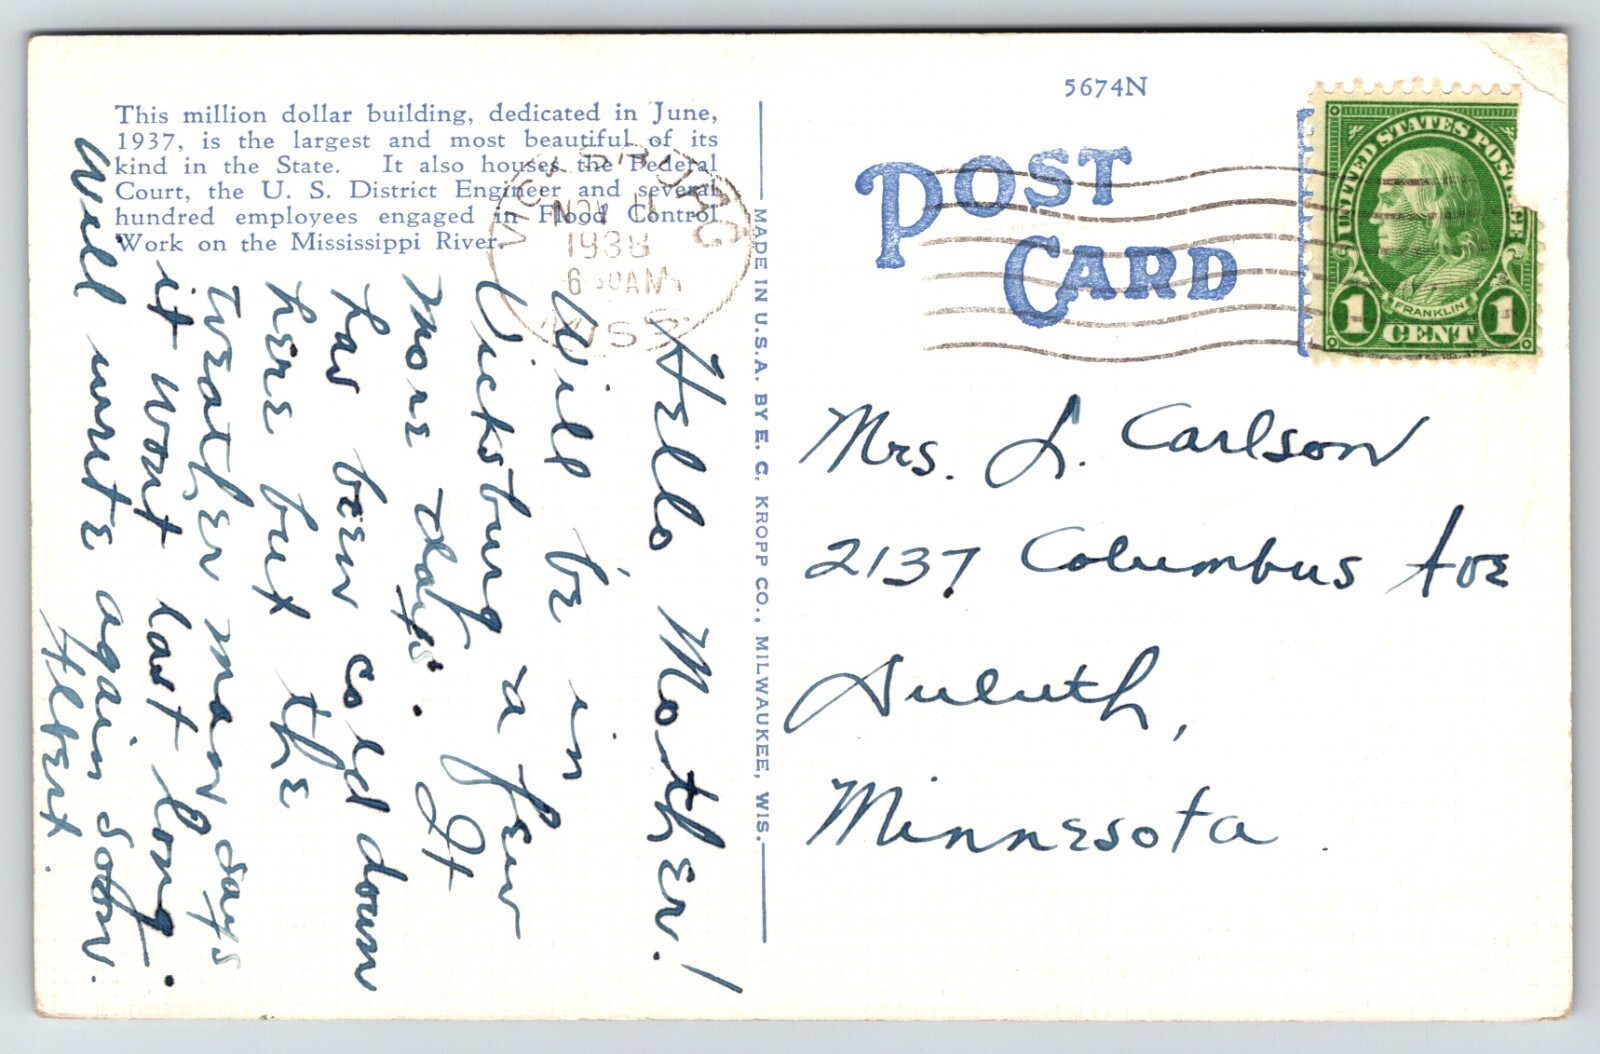 This million dollar building, dedicated in June,
1937, is the largest and most beautiful of its
kind in the State. It also houses the Federal
Court, the U. S. District Engineer and several
hundred employees engaged in Flood Control
Work on the Mississippi River.
VICKSBURG
NOV 1
1938
AM
MISS
Hello, Mother!
Will be in
Vicksburg a few
more days. It
has been cold down
here but the
weather man says
it wont last long.
Will write again soon.
Albert.
MADE IN U.S.A. BY E. C. KROPP CO., MILWAUKEE, WIS.
5674N
POST
CARD
UNITED STATES POSTAGE
FRANKLIN
1 CENT 1
Mrs. L. Carlson
2137 Columbus Ave
Duluth,
Minnesota.